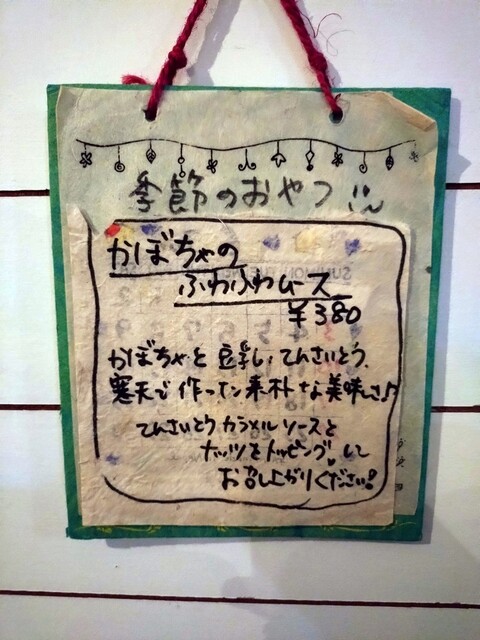 季節のおやつ
かぼちゃの
ふわふわムース
¥380
かぼちゃと豆乳、てんさいとう、
寒天で作った素朴な美味しさ♪
てんさいとうカラメルソースと
ナッツをトッピングして
お召し上がりください!